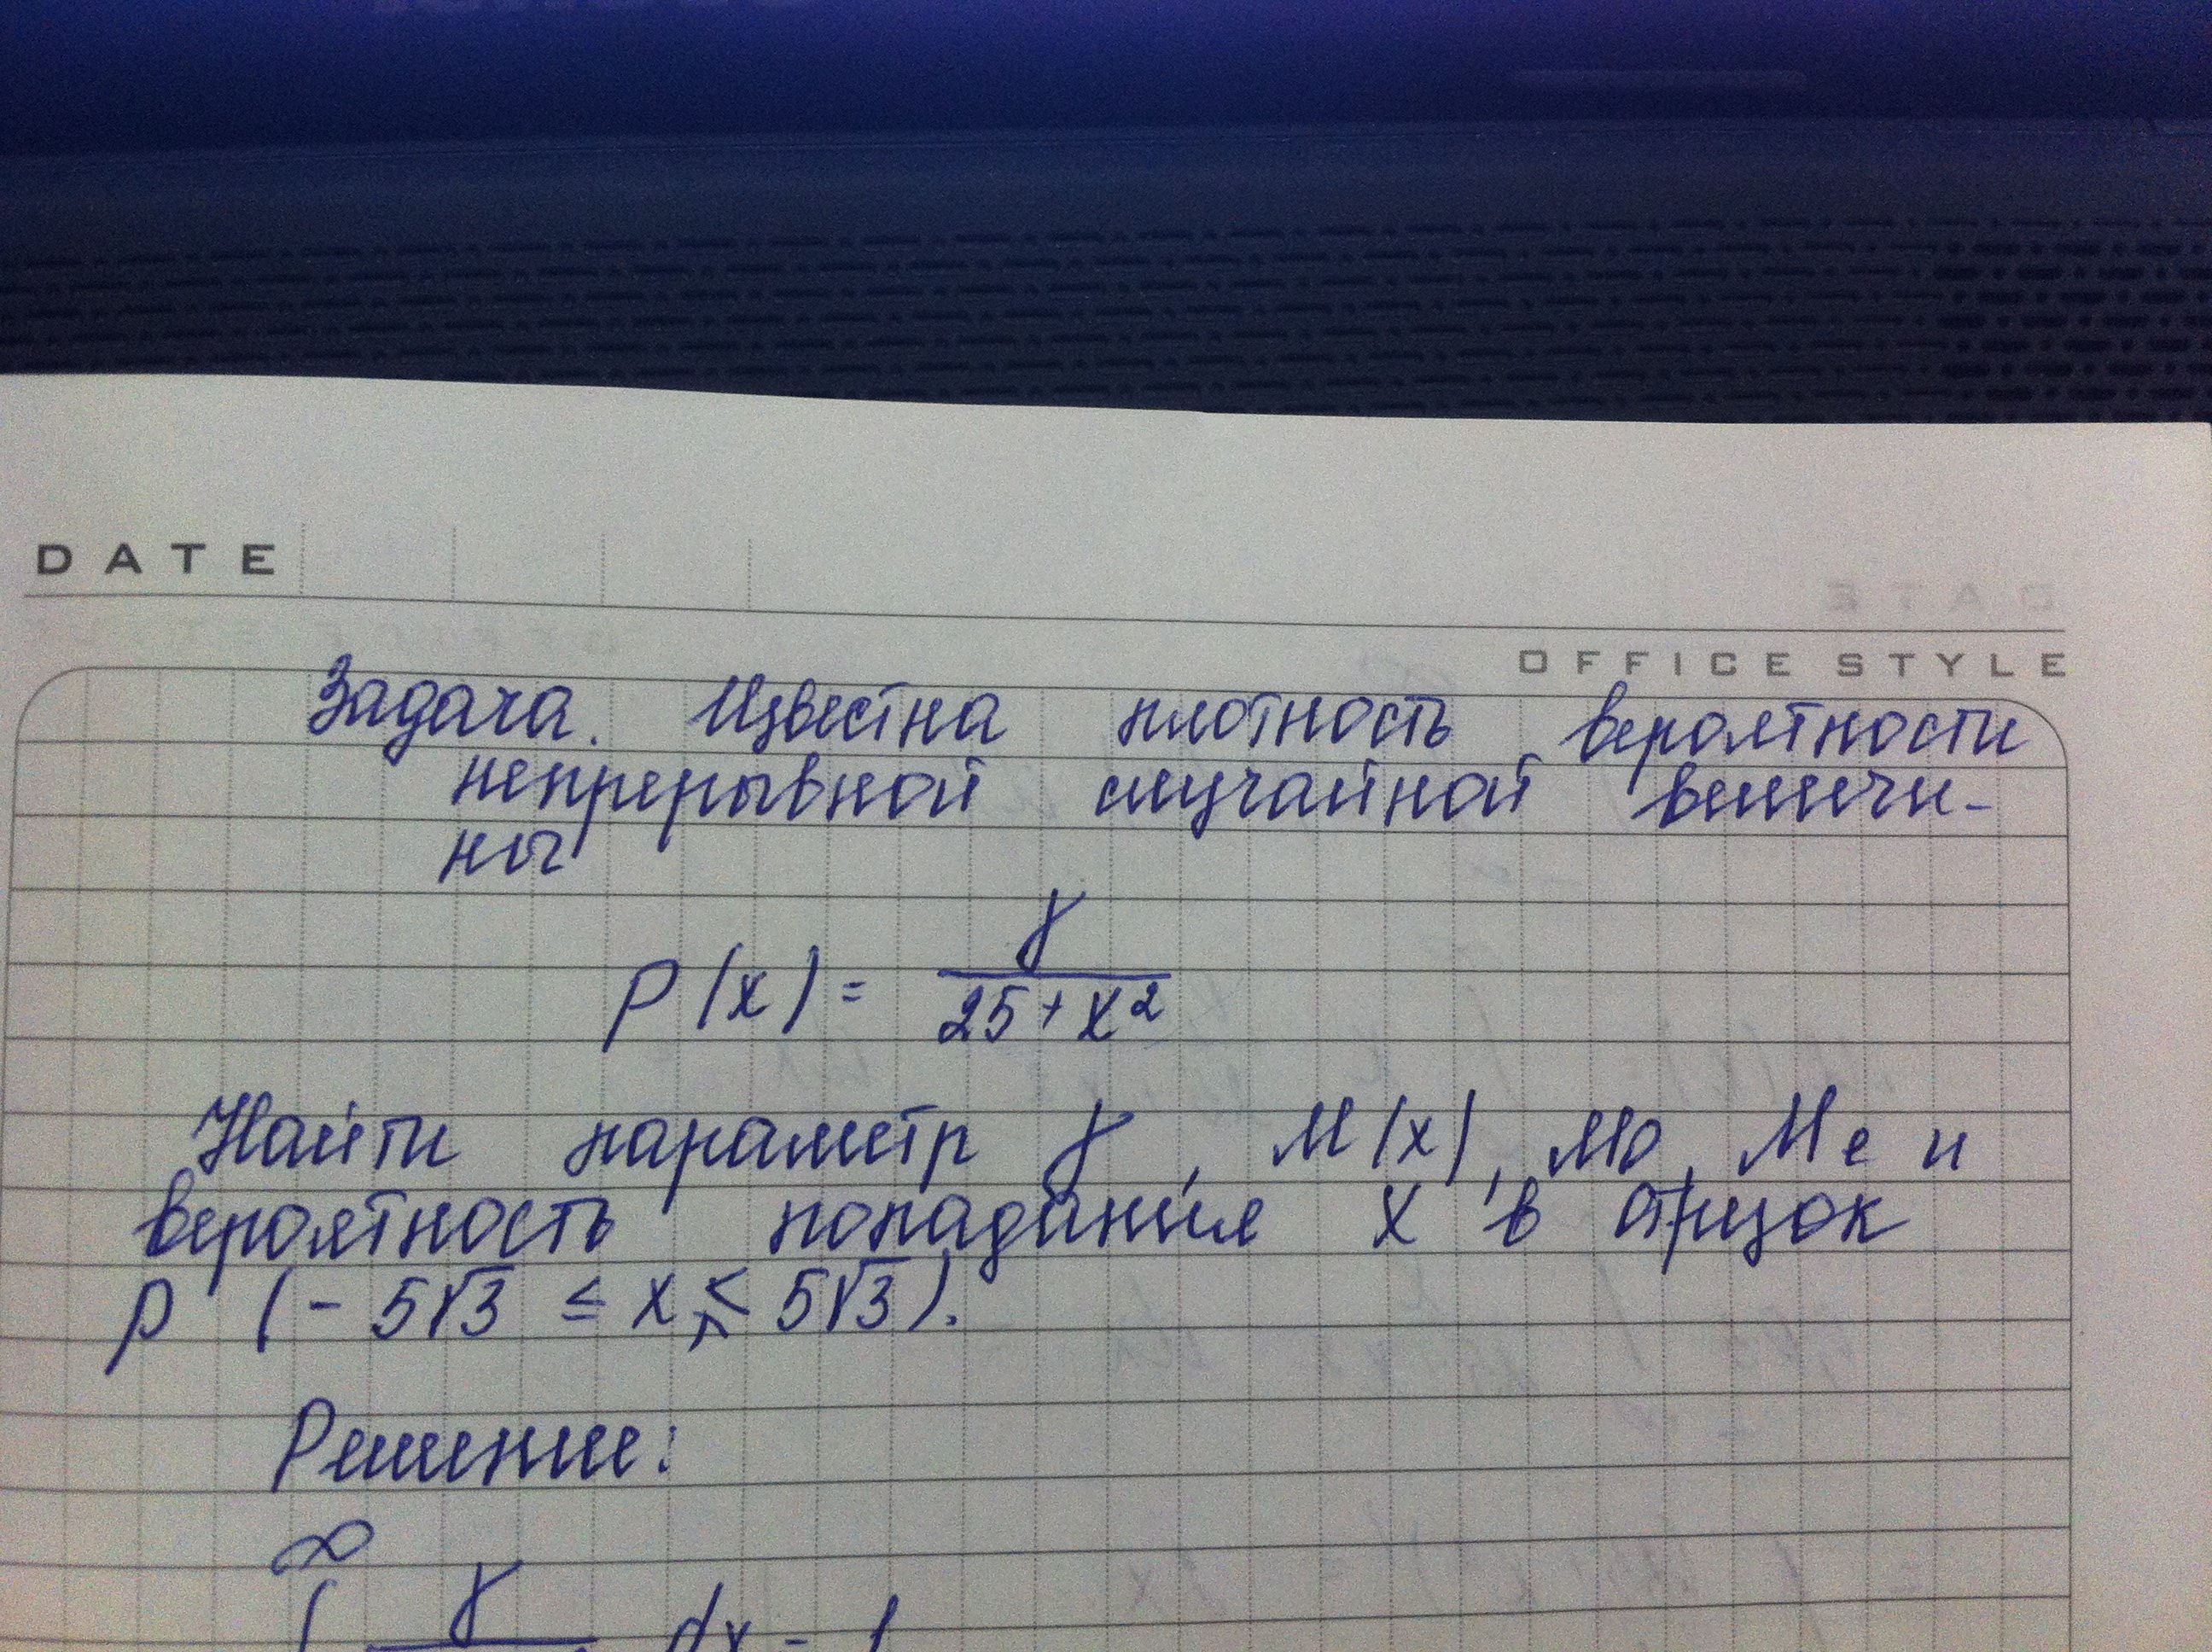 DATE
OFFICE STYLE
Задача. Известна плотность вероятности
непрерывной случайной величи-
ны
P(x) = γ / (25 + x²)
Найти параметр γ, M(x), Mo, Me и
вероятность попадания X в отрезок
P (-5√3 ≤ x ≤ 5√3).
Решение:
∞
∫ γ dx = 1